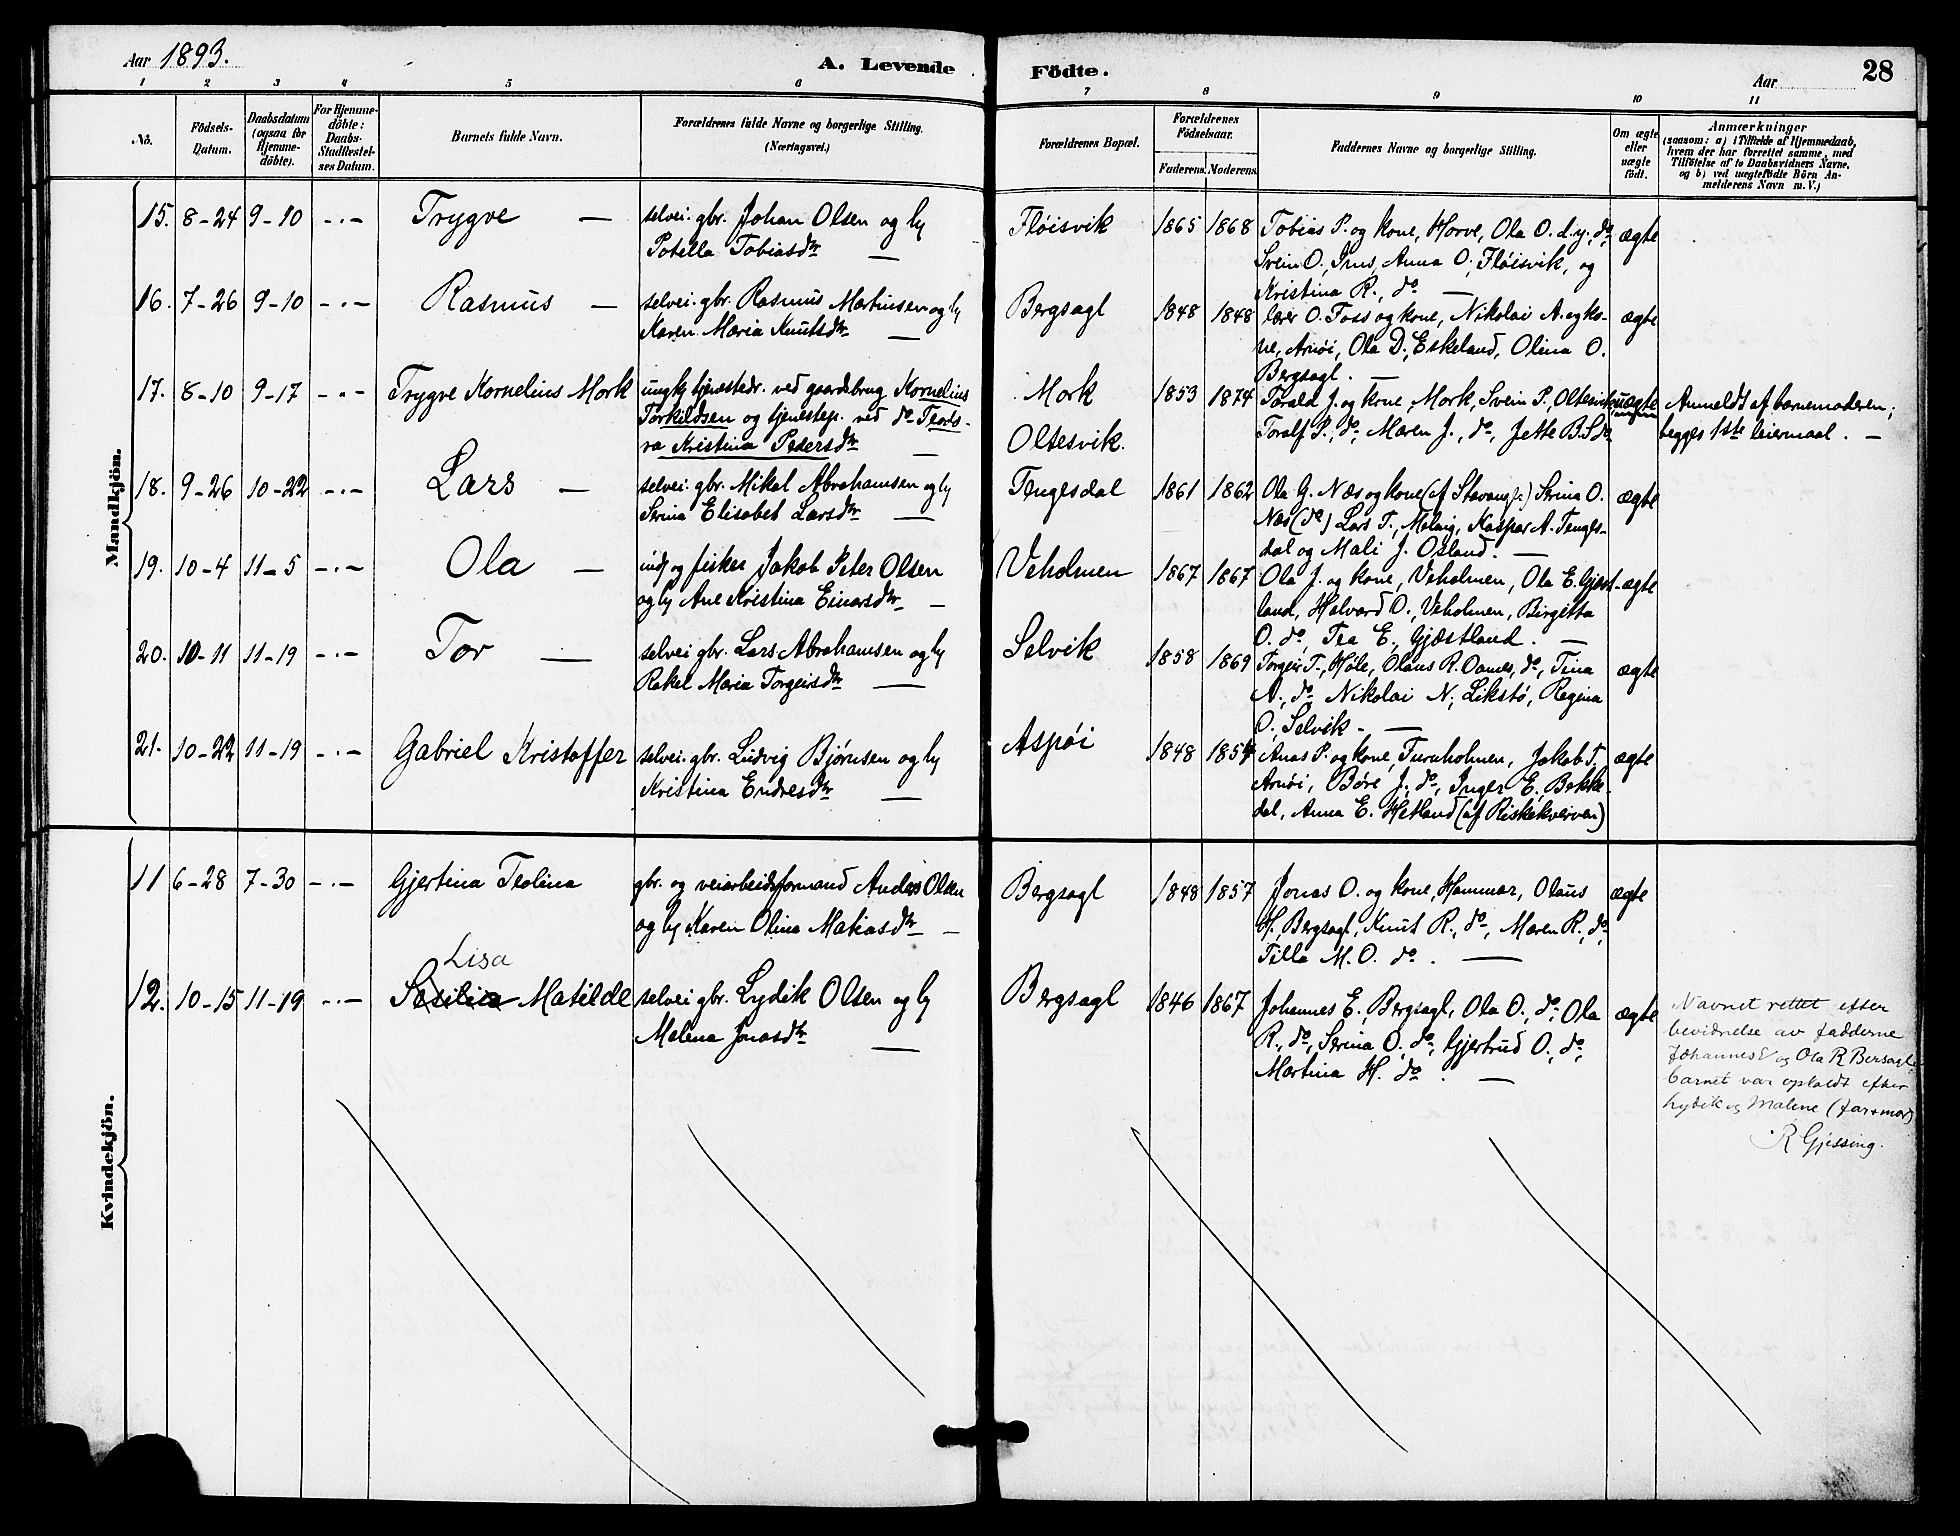 Aar 1893.
A. Levende Födte.
Aar
28
1 2 3 4 5 6 7 8 9 10 11
No.
Födsels-Datum.
Daabsdatum (ogsaa for Hjemme-döbte).
For Hjemme-döbte: Daabs-Stadfæstel-ses Datum.
Barnets fulde Navn.
Forældrenes fulde Navne og borgerlige Stilling. (Næringsvei.)
Forældrenes Bopæl.
Forældrenes Födselsaar.
Faderens. Moderens.
Faddernes Navne og borgerlige Stilling.
Om ægte eller uægte födt.
Anmærkninger
(saasom: a) i Tilfælde af Hjemmedaab, hvem der har forrettet samme, med Tilföielse af to Daabsvidners Navne, og b) ved uægtefödte Börn An-melderens Navn m. V.)
Mandkjön.
15. 8-24 9-10 -.- Trygve —
selvei. gbr. Johan Olsen og hy
Potella Tobiasdtr —
Fløisvik 1865 1868
Tobias P. og kone, Horve, Ola O. d. y., do
Svein O., Ims, Anna O., Fløisvik, og
Kristina R., do —
ægte
16. 7-26 9-10 -.- Rasmus —
selvei. gbr. Rasmus Martinsen og hy
Karen Maria Knutsdtr —
Bergsagl 1848 1848
lærer O. Foss og kone, Nikolai A. og ko-
ne, Arnøi, Ola D., Eskeland, Olina O.
Bergsagl. —
ægte
17. 8-10 9-17 -.- Trygve Kornelius Mork
ungk tjenestedr. ved gaardsbrug Kornelius
Torkildsen og tjenestep. ved do Teodo-
ra Kristina Pedersdtr —
Mork
Oltesvik.
1853 1874
Torald J. og kone, Mork, Svein P., Oltesvik,
Toralf P., do, Maren J., do, Jette B. S do
uægte
Anmeldt af barnemoderen;
begges 1ste leiermaal. —
18. 9-26 10-22 -.- Lars —
selvei. gbr. Mikal Abrahamsen og hy
Serina Elisabet Larsdtr —
Tengesdal 1861 1862
Ola G. Næs og kone (af Stavang) Serina O.
Næs (do) Lars T., Maleig, Kaspar A. Tenges-
dal og Mali J. Osland. —
ægte
19. 10-4 11-5 -.- Ola —
indr og fisker Jakob Peter Olsen
og hy Ane Kristina Einarsdtr —
Veholmen 1867 1867
Ola J. og kone, Veholmen, Ola E. Gjæst-
land, Halvard O., Veholmen, Birgitta
O. do, Tea E., Gjæstland. —
ægte
20. 10-11 11-19 -.- Tor —
selvei gbr. Lars Abrahamsen og hy
Rakel Maria Torgeirsdtr —
Selvik 1858 1869
Torgeir T., Høle, Olaus R. Oames, do, Tina
A., do Nikolai N., Likstø, Regina
O., Selvik. —
ægte
21. 10-22 11-19 -.- Gabriel Kristoffer
selvei. gbr. Ludvig Bjørnsen og hy
Kristina Endresdtr —
Aspøi 1848 1854
Anas P. og kone, Furuholmen, Jakob T.
Arnøi, Børe J., do, Inger E. Bekke-
dal, Anna E. Hetland (af Riskekverven)
ægte
Kvindekjön.
11 6-28 7-30 -.- Gjertina Teolina
gbr. og veiarbeidsformand Anders Olsen
og hy Karen Olina Matiasdtr —
Bergsagl 1848 1857
Jonas O. og kone, Hammar, Olaus
H., Bergsagl, Knut R., do, Maren R., do,
Tilla M. O. do. —
ægte
Lisa
12. 10-15 11-19 -.- Sesilia Matilde
selvei gbr. Lydik Olsen og hy
Malena Jonasdtr —
Bergsagl 1846 1867
Johannes E., Bergsagl, Ola O., do, Ola
R., do, Serina O. do, Gjertrud O., do,
Martina H. do. —
ægte
Navnet rettet efter
bevidnelse av fadderne
Johannes E og Ola R Bersagl,
barnet var opkaldt efter
Lydik og Malene (far+mor)
R Gjessing.